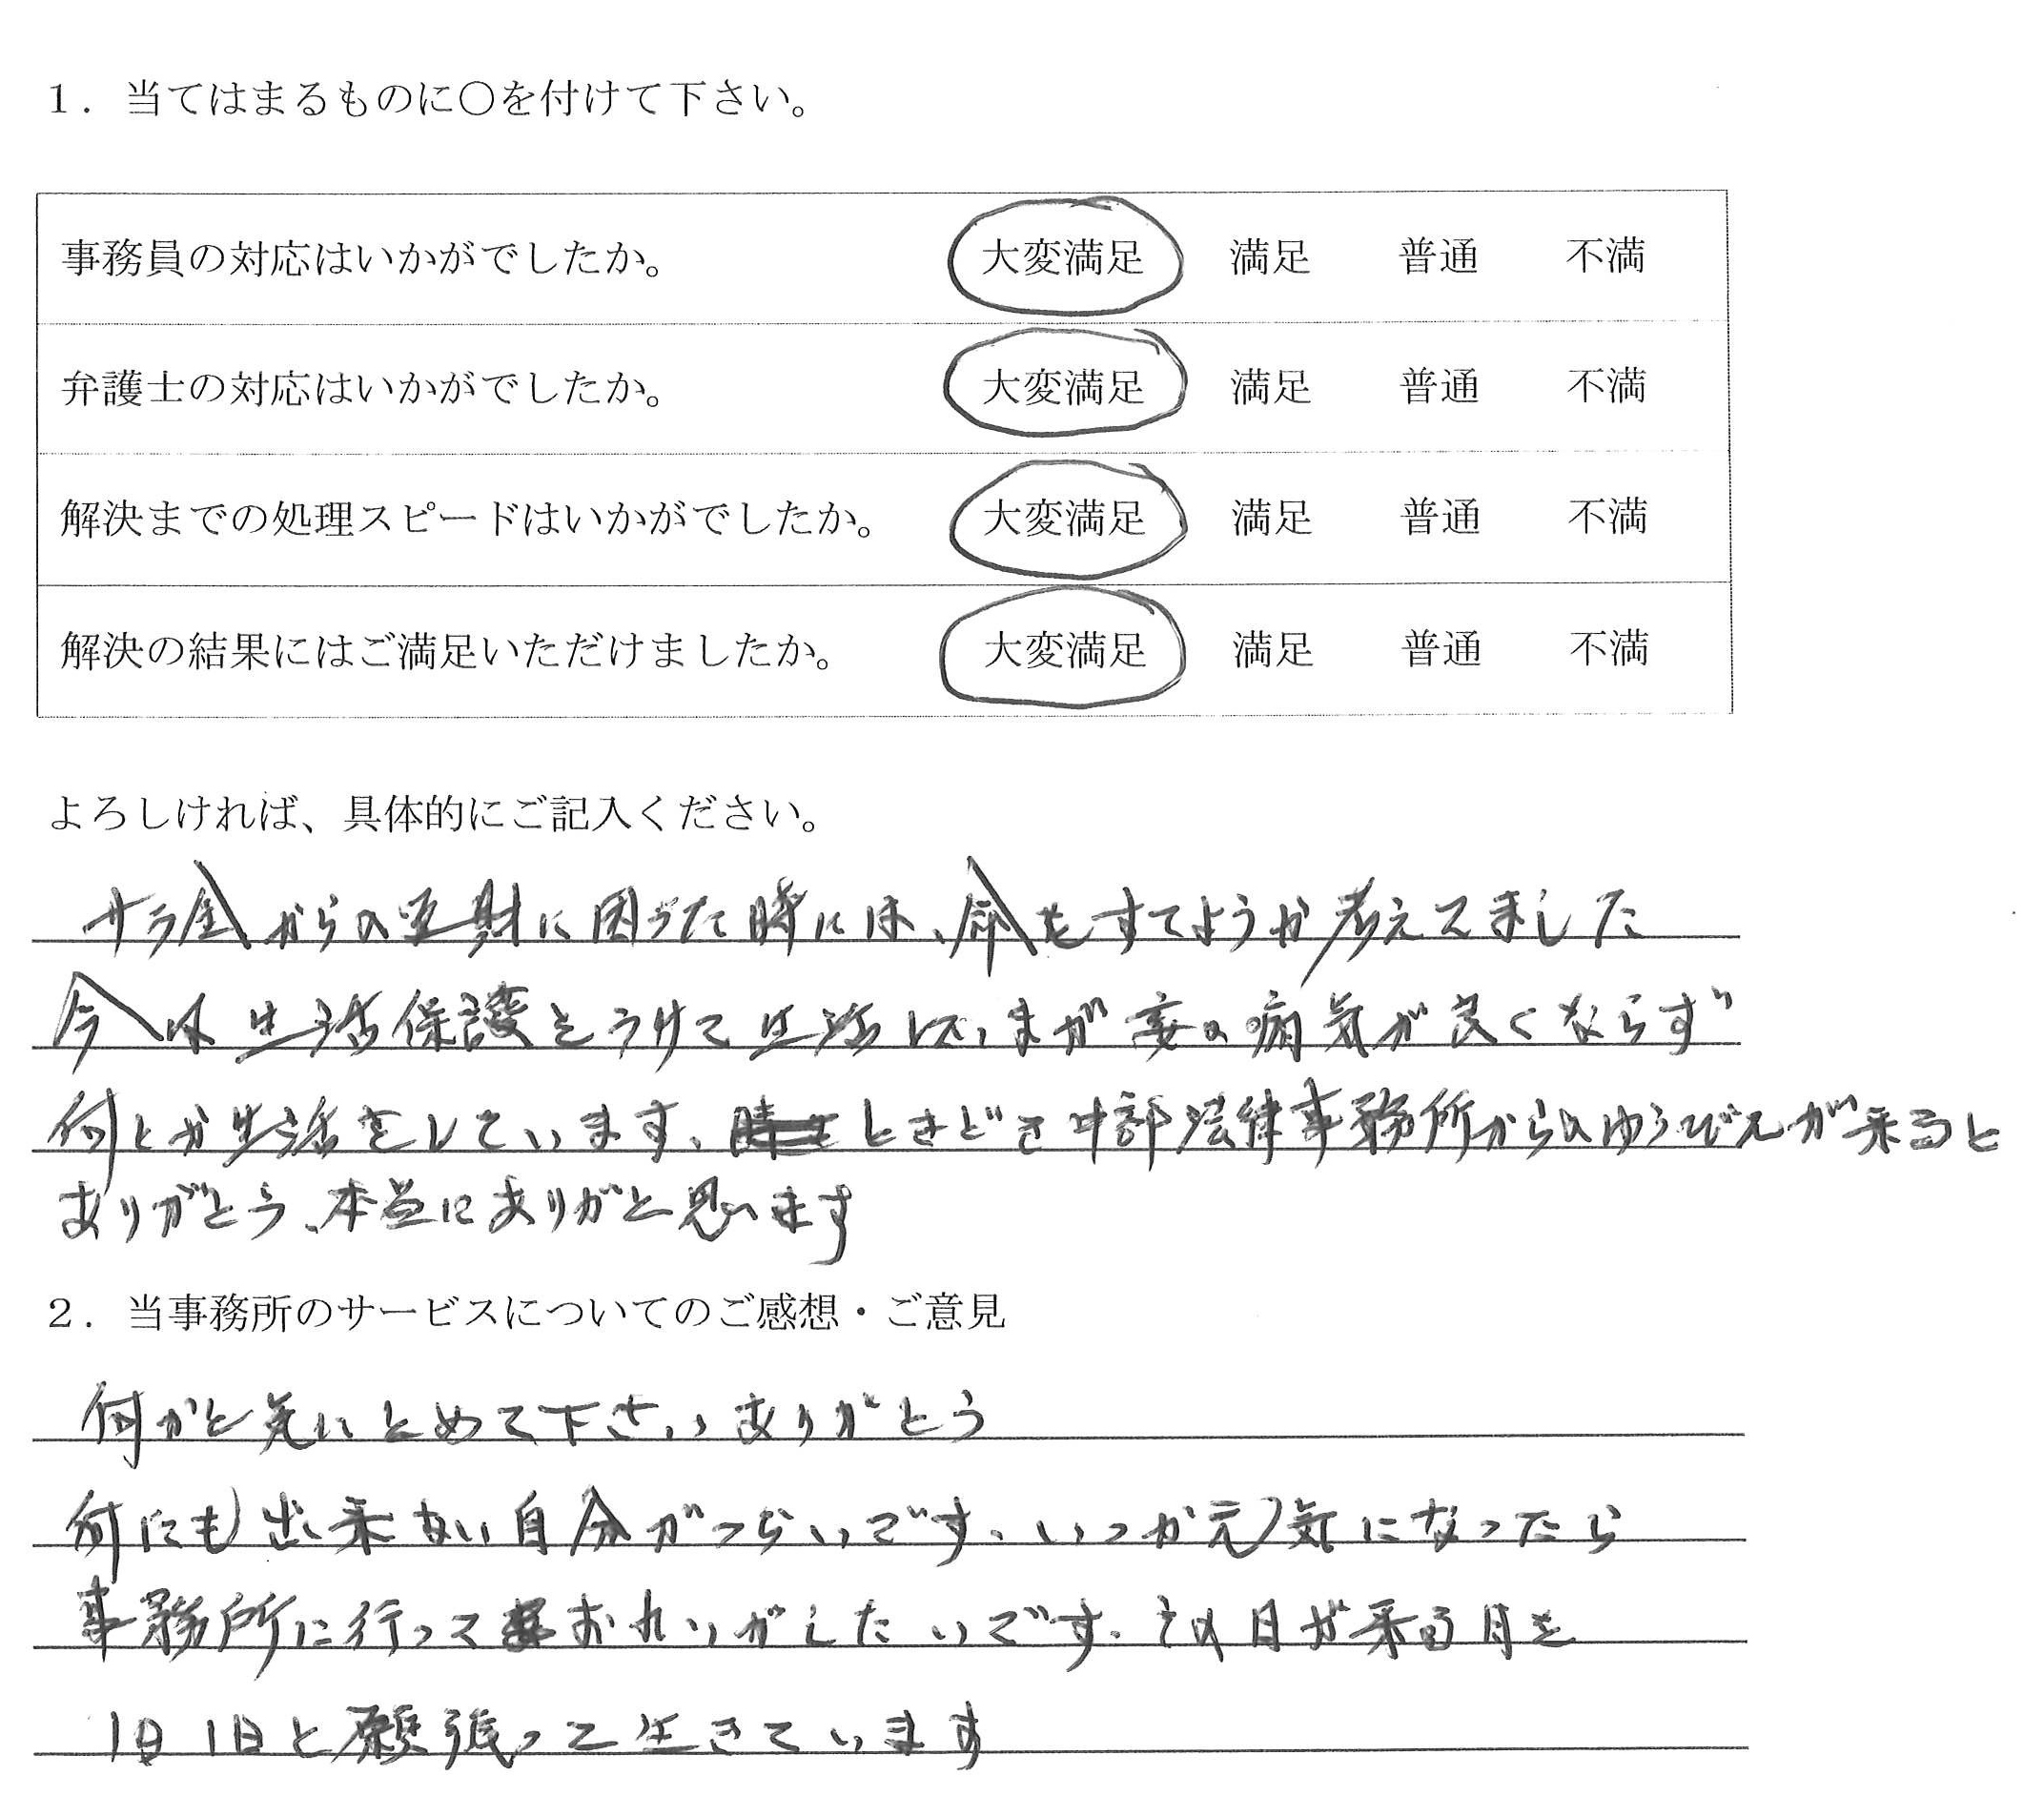 1．当てはまるものに○を付けて下さい。
事務員の対応はいかがでしたか。 大変満足 満足 普通 不満
弁護士の対応はいかがでしたか。 大変満足 満足 普通 不満
解決までの処理スピードはいかがでしたか。 大変満足 満足 普通 不満
解決の結果にはご満足いただけましたか。 大変満足 満足 普通 不満
よろしければ、具体的にご記入ください。
サラ金からの に困った時には、命もすてようか考えてました
今は生活保護をうけて生活していまが妻の病気が良くならず
何とか生活をしています、ときどき中部法律事務所からのゆうびんが来ると
ありがとう、本当にありがと思います
2．当事務所のサービスについてのご感想・ご意見
何かと気にとめて下さいありがとう
何にも出来ない自分がつらいです、いつか元気になったら
事務所に行っておれいがしたいです、その日が来る日を
1日1日と願張って生きています